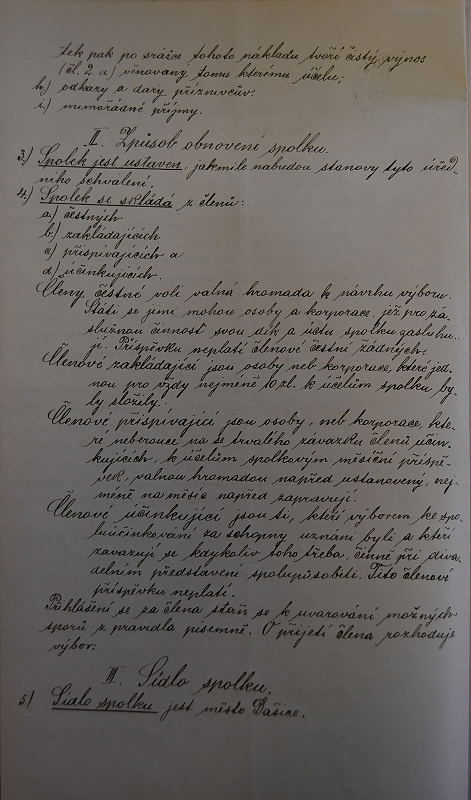 tek pak po srážce tohoto nákladu tvoří čistý výnos
(čl. 2. a) věnovaný tomu kterému účelu;
h.) odkazy a dary příznivcův:
i.) mimořádné příjmy.
II. Způsob obnovení spolku.
3.) Spolek jest ustaven, jakmile nabudou stanovy tyto úřed-
ního schválení.
4.) Spolek se skládá z členů:
a.) čestných
b.) zakládajících
c.) přispívajících a
d.) účinkujících.
Členy čestné volí valná hromada k návrhu výboru.
Státi se jimi mohou osoby a korporace, jež pro zá-
služnou činnosť svou dík a úctu spolku zasluhu-
jí. Příspěvku neplatí členové čestní žádných.
Členové zakládající jsou osoby neb korporace, které jed-
nou pro vždy nejméně 10 zl. k účelům spolku by-
ly složily.
Členové přispívající jsou osoby, neb korporace, kte-
ré neberouce na se trvalého závazku členů účin-
kujících, k účelům spolkovým měsíční příspě-
vek, valnou hromadou napřed ustanovený, nej-
méně na měsíc napřed zapravují.
Členové účinkující jsou ti, kteří výborem ke spo-
luúčinkování za schopny uznáni byli a kteří
zavazují se kdykoliv toho třeba, činně při diva-
delním představení spolupůsobiti. Tito členové
příspěvku neplatí.
Přihlášení se za člena staň se k uvarování možných
sporů z pravidla písemně. O přijetí člena rozhoduje
výbor:
III. Sídlo spolku.
5.) Sídlo spolku jest město Dašice.